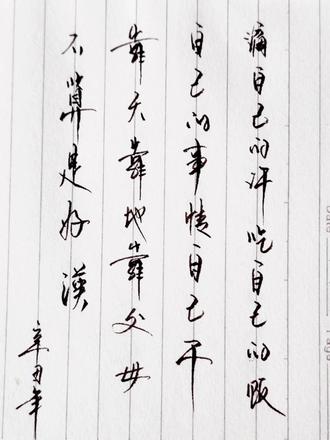 滴自己的汗吃自己的飯
自己的事情自己干
靠天靠地靠父母
不算是好漢
辛丑年